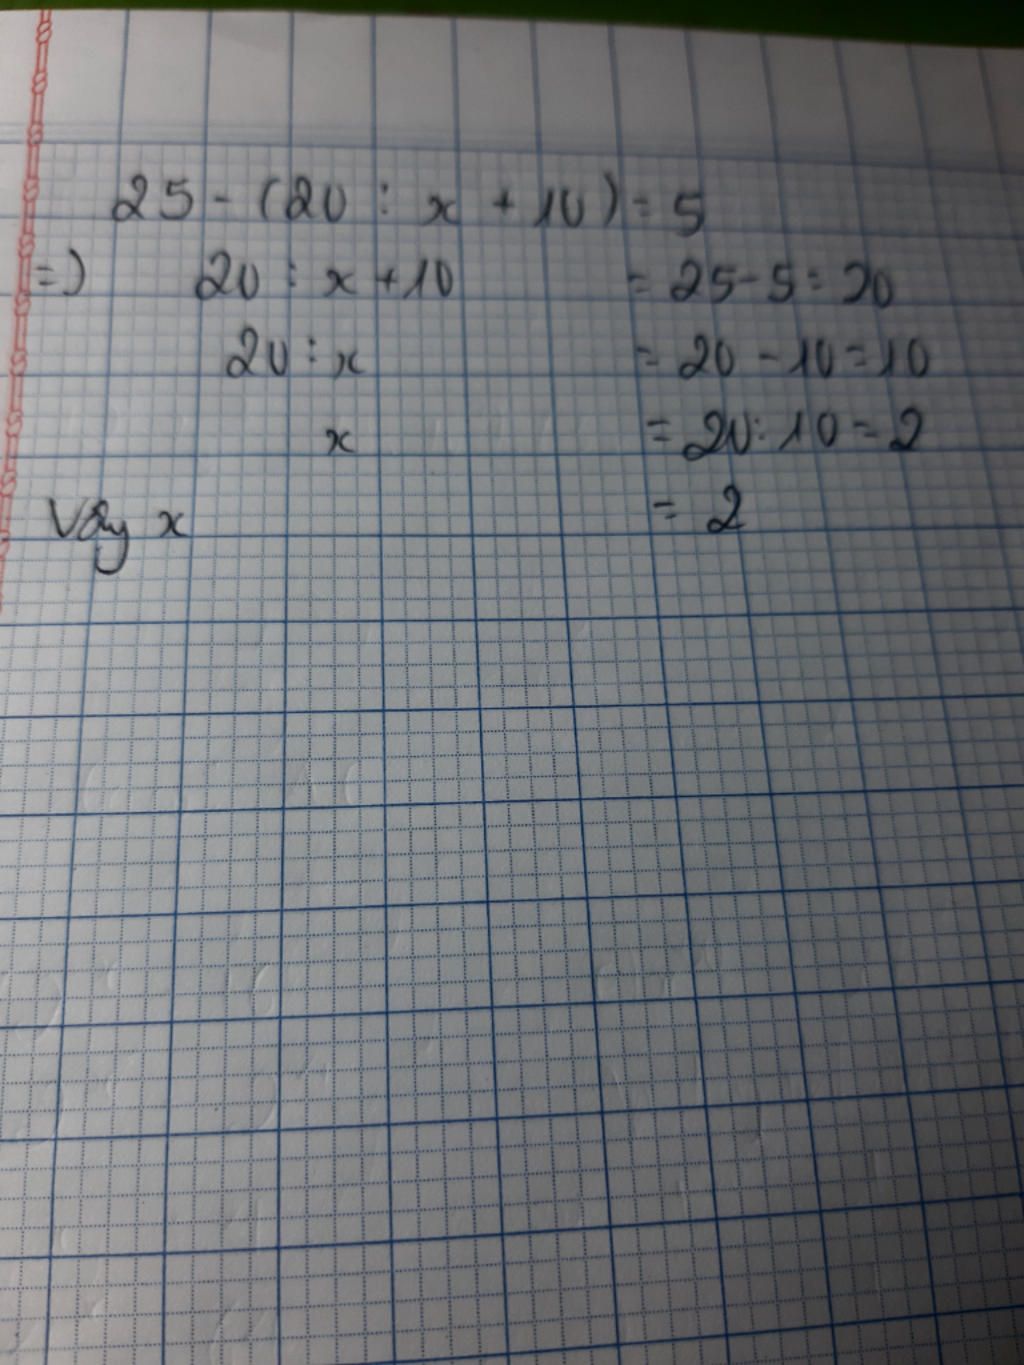 25 - (20 : x + 10) = 5
=> 20 : x + 10 = 25 - 5 = 20
20 : x = 20 - 10 = 10
x = 20 : 10 = 2
Vậy x = 2